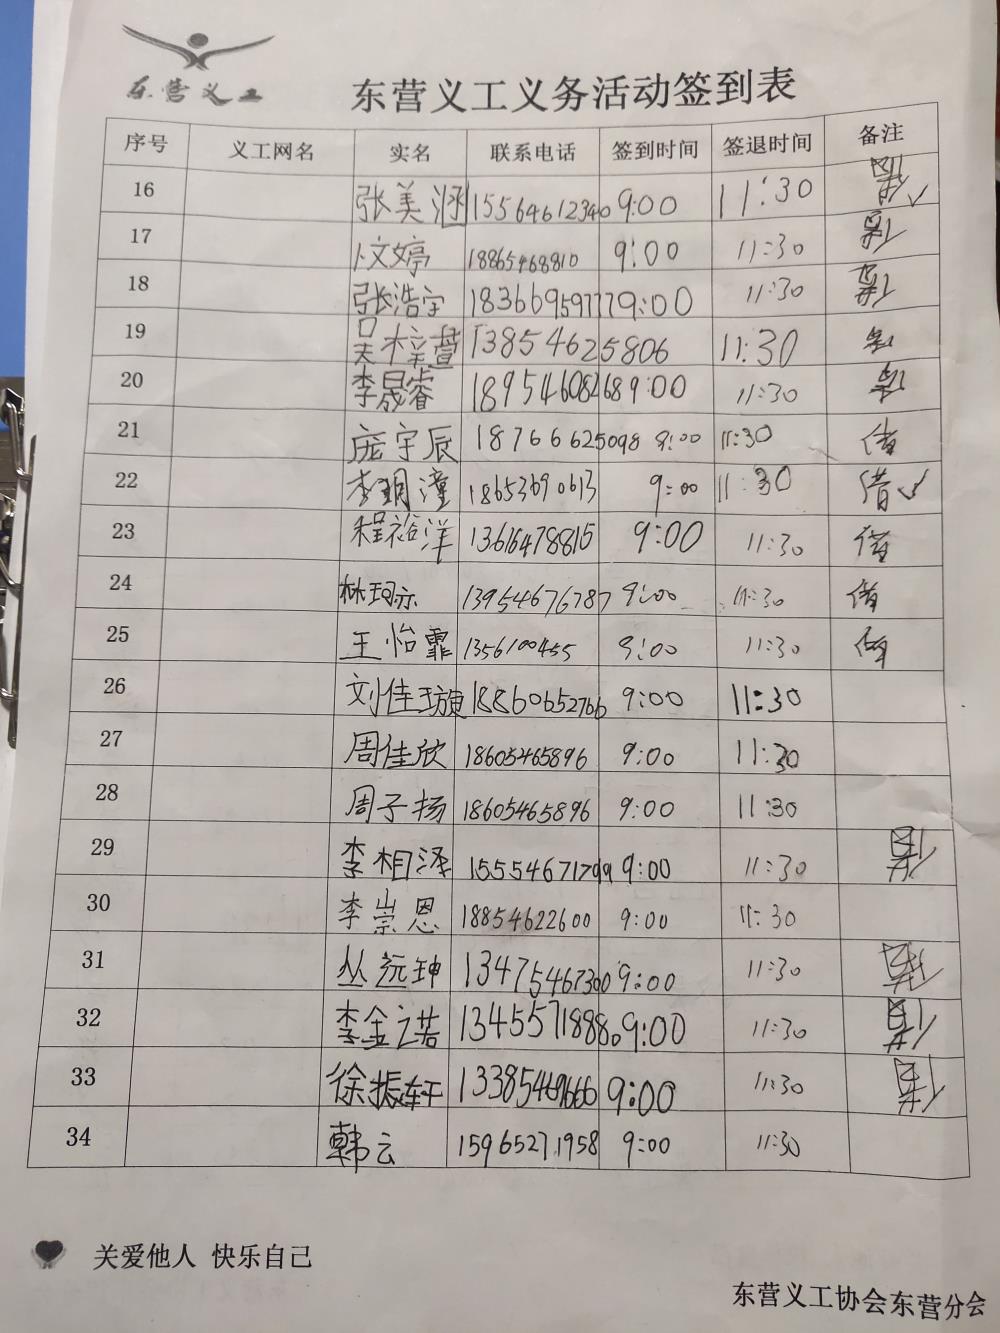 东营义工
东营义工义务活动签到表
序号 义工网名 实名 联系电话 签到时间 签退时间 备注
16 张美涵 15564612340 9:00 11:30
17 卜文婷 18865468810 9:00 11:30
18 张浩宇 18366959777 9:00 11:30
19 吴梓萱 13854625806 11:30
20 李晟睿 18954608268 9:00 11:30
21 庞宇辰 18766625098 9:00 11:30 借
22 李玥潼 18653690613 9:00 11:30 借✓
23 程裕洋 13616478815 9:00 11:30 借
24 林珂亦 13954676787 9:00 11:30 借
25 王怡霏 1356100455 9:00 11:30
26 刘佳璇 18860652766 9:00 11:30
27 周佳欣 18605465896 9:00 11:30
28 周子扬 18605465896 9:00 11:30
29 李相泽 15554671799 9:00 11:30
30 李崇恩 18854622600 9:00 11:30
31 丛沅珅 13475467300 9:00 11:30
32 李金之诺 13455718880 9:00 11:30
33 徐振轩 13385469666 9:00 11:30
34 韩云 15965271958 9:00 11:30
关爱他人 快乐自己
东营义工协会东营分会